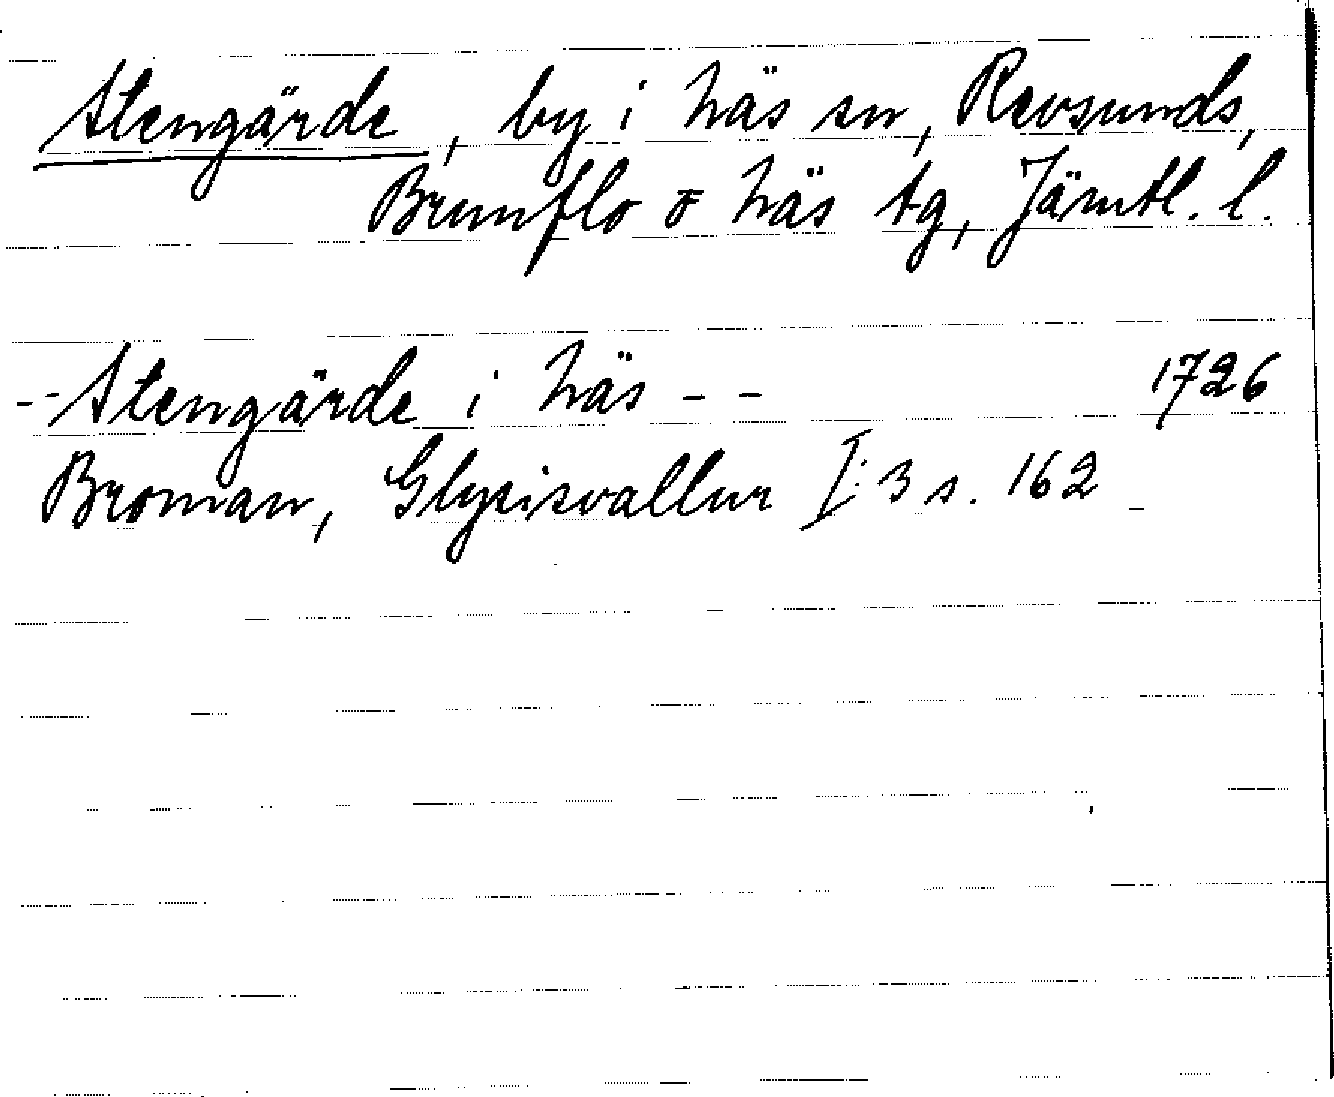 Stengärde, by i Näs sn, Revsunds,
Brunflo o Näs tg, Jämtl. l.
-- Stengärde i Näs -- 1726
Broman, Glysisvallur I:3 s. 162